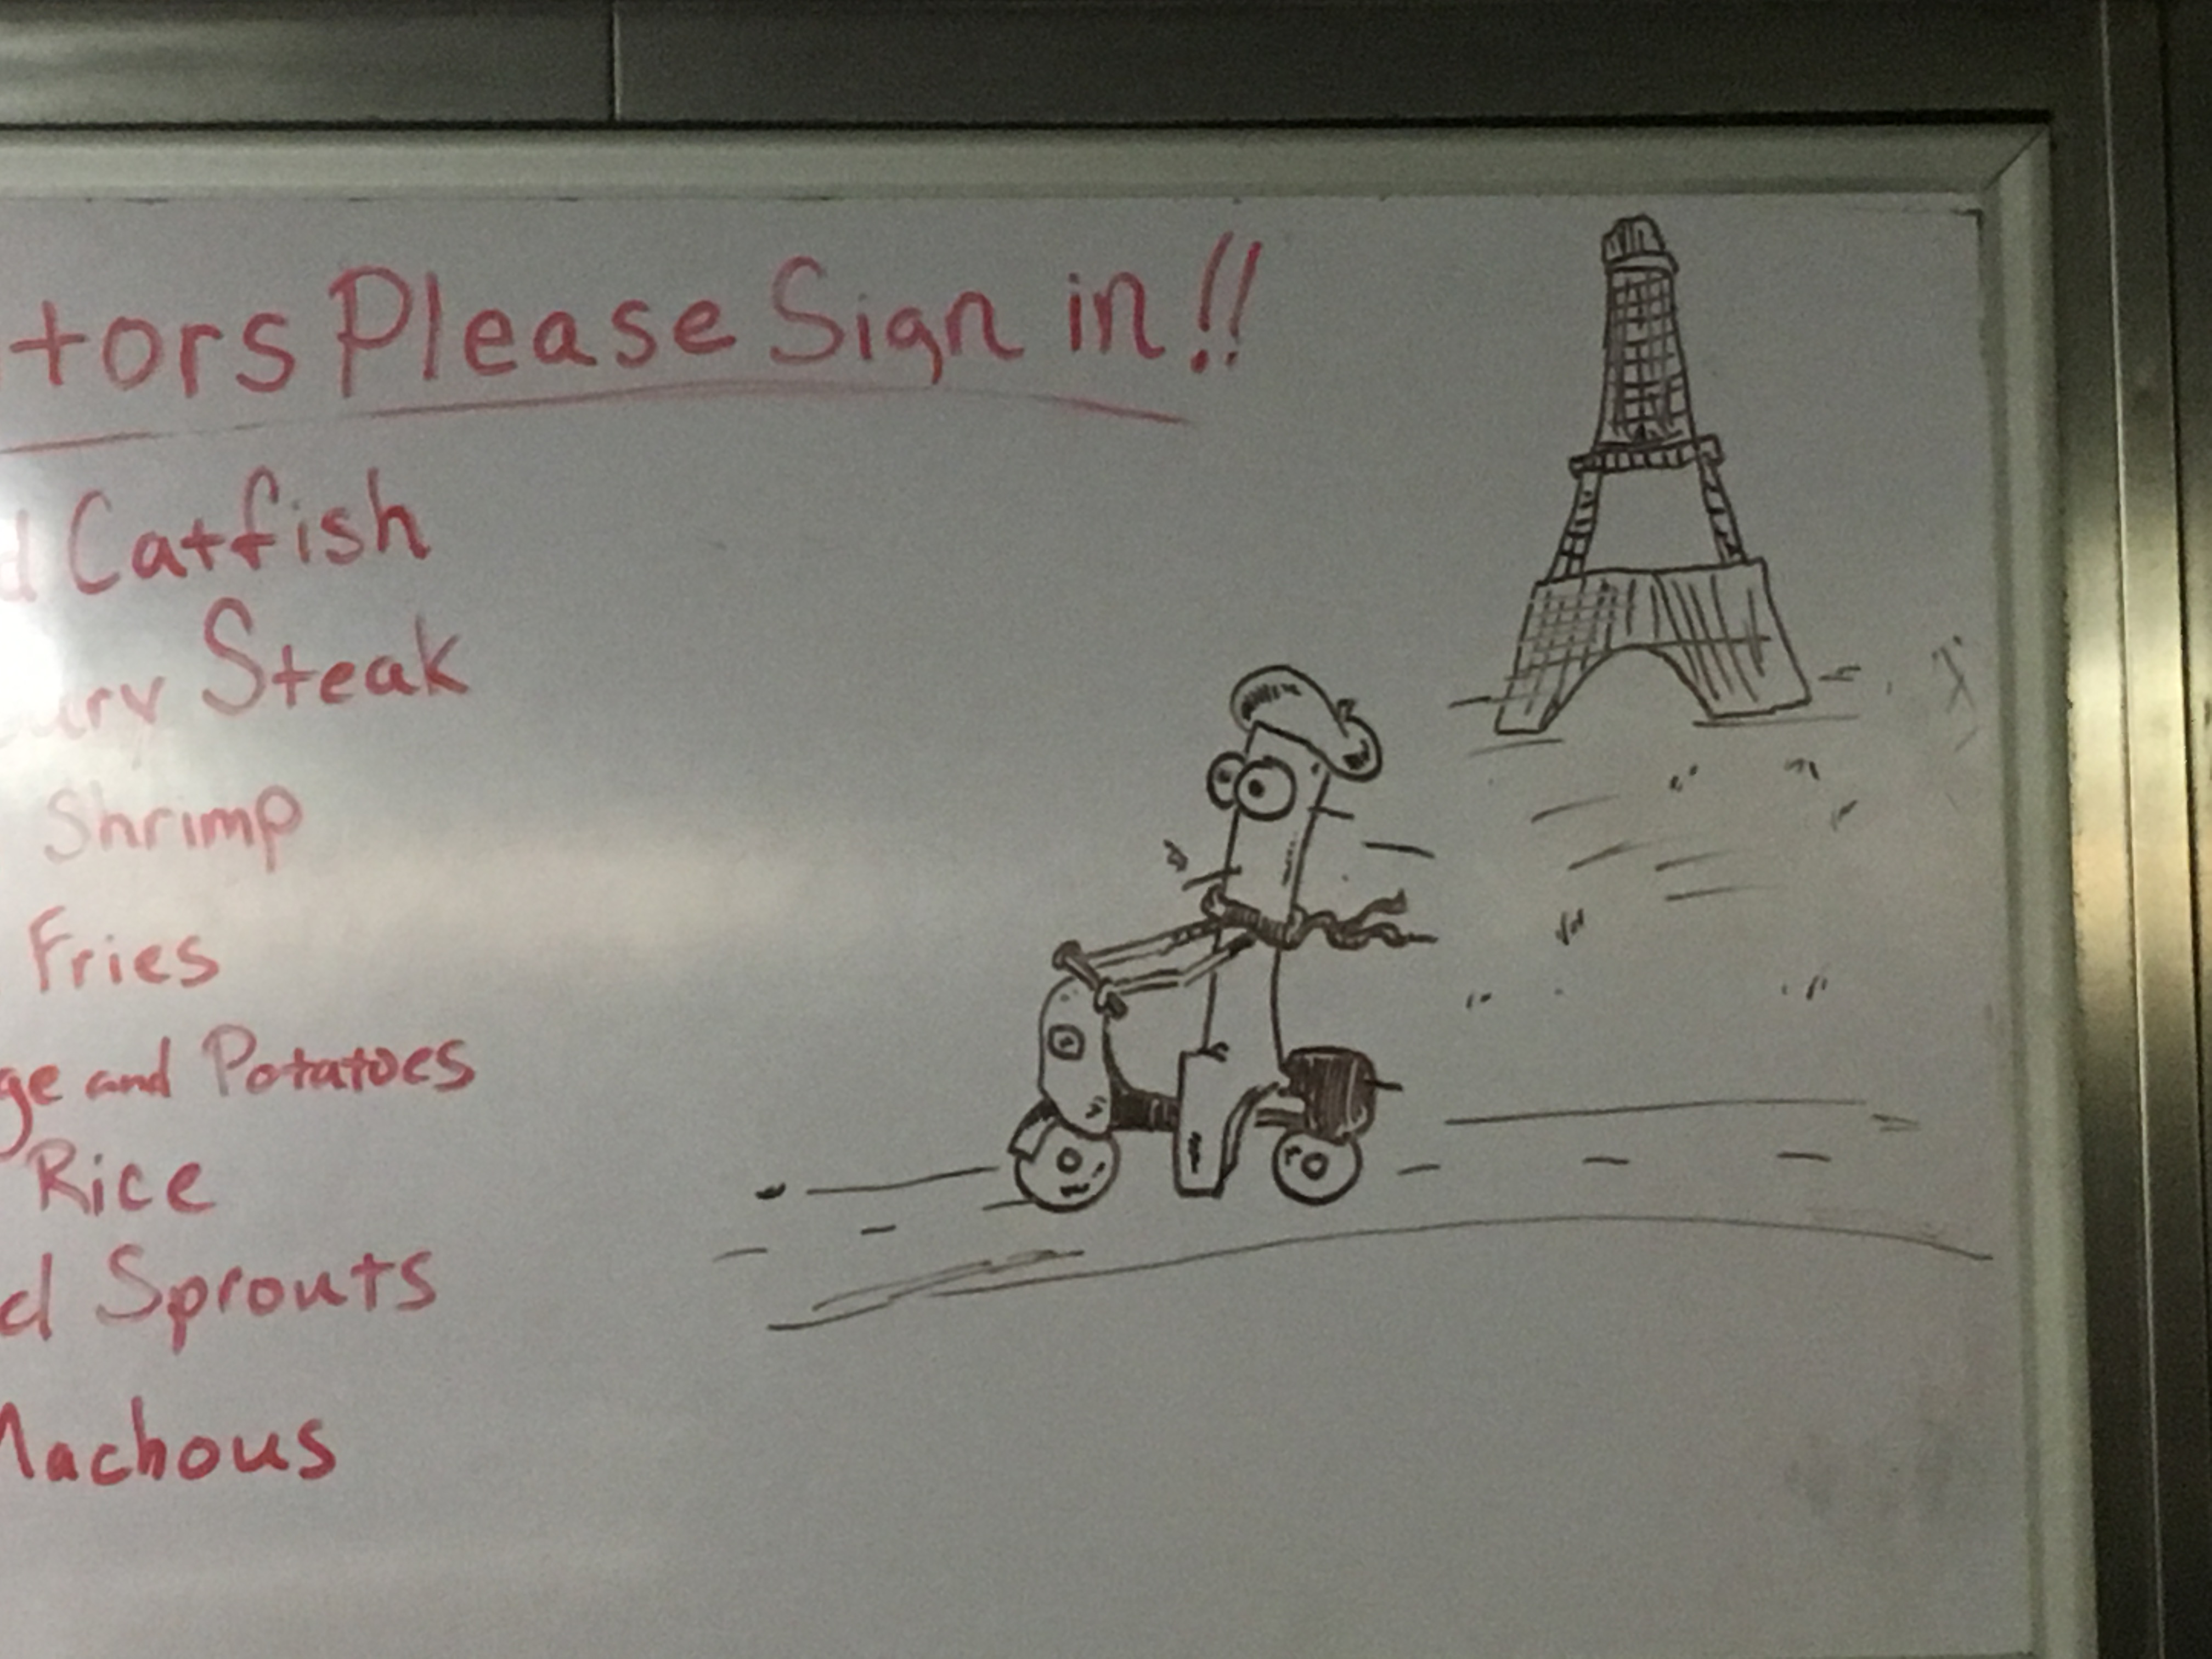 tors Please Sign in!!
d Catfish
ury Steak
Shrimp
Fries
ge and Potatoes
Rice
d Sprouts
Machous